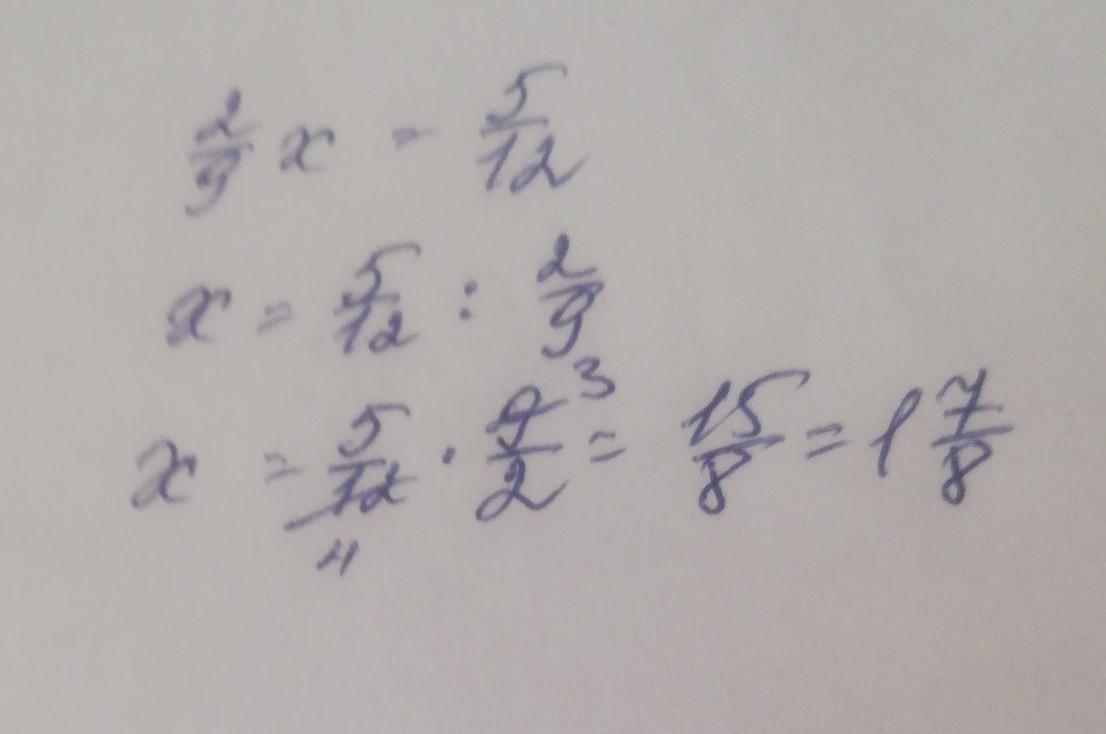 2/9 x = 5/12
x = 5/12 : 2/9
x = 5/12 4 · 9/2 3 = 15/8 = 1 7/8